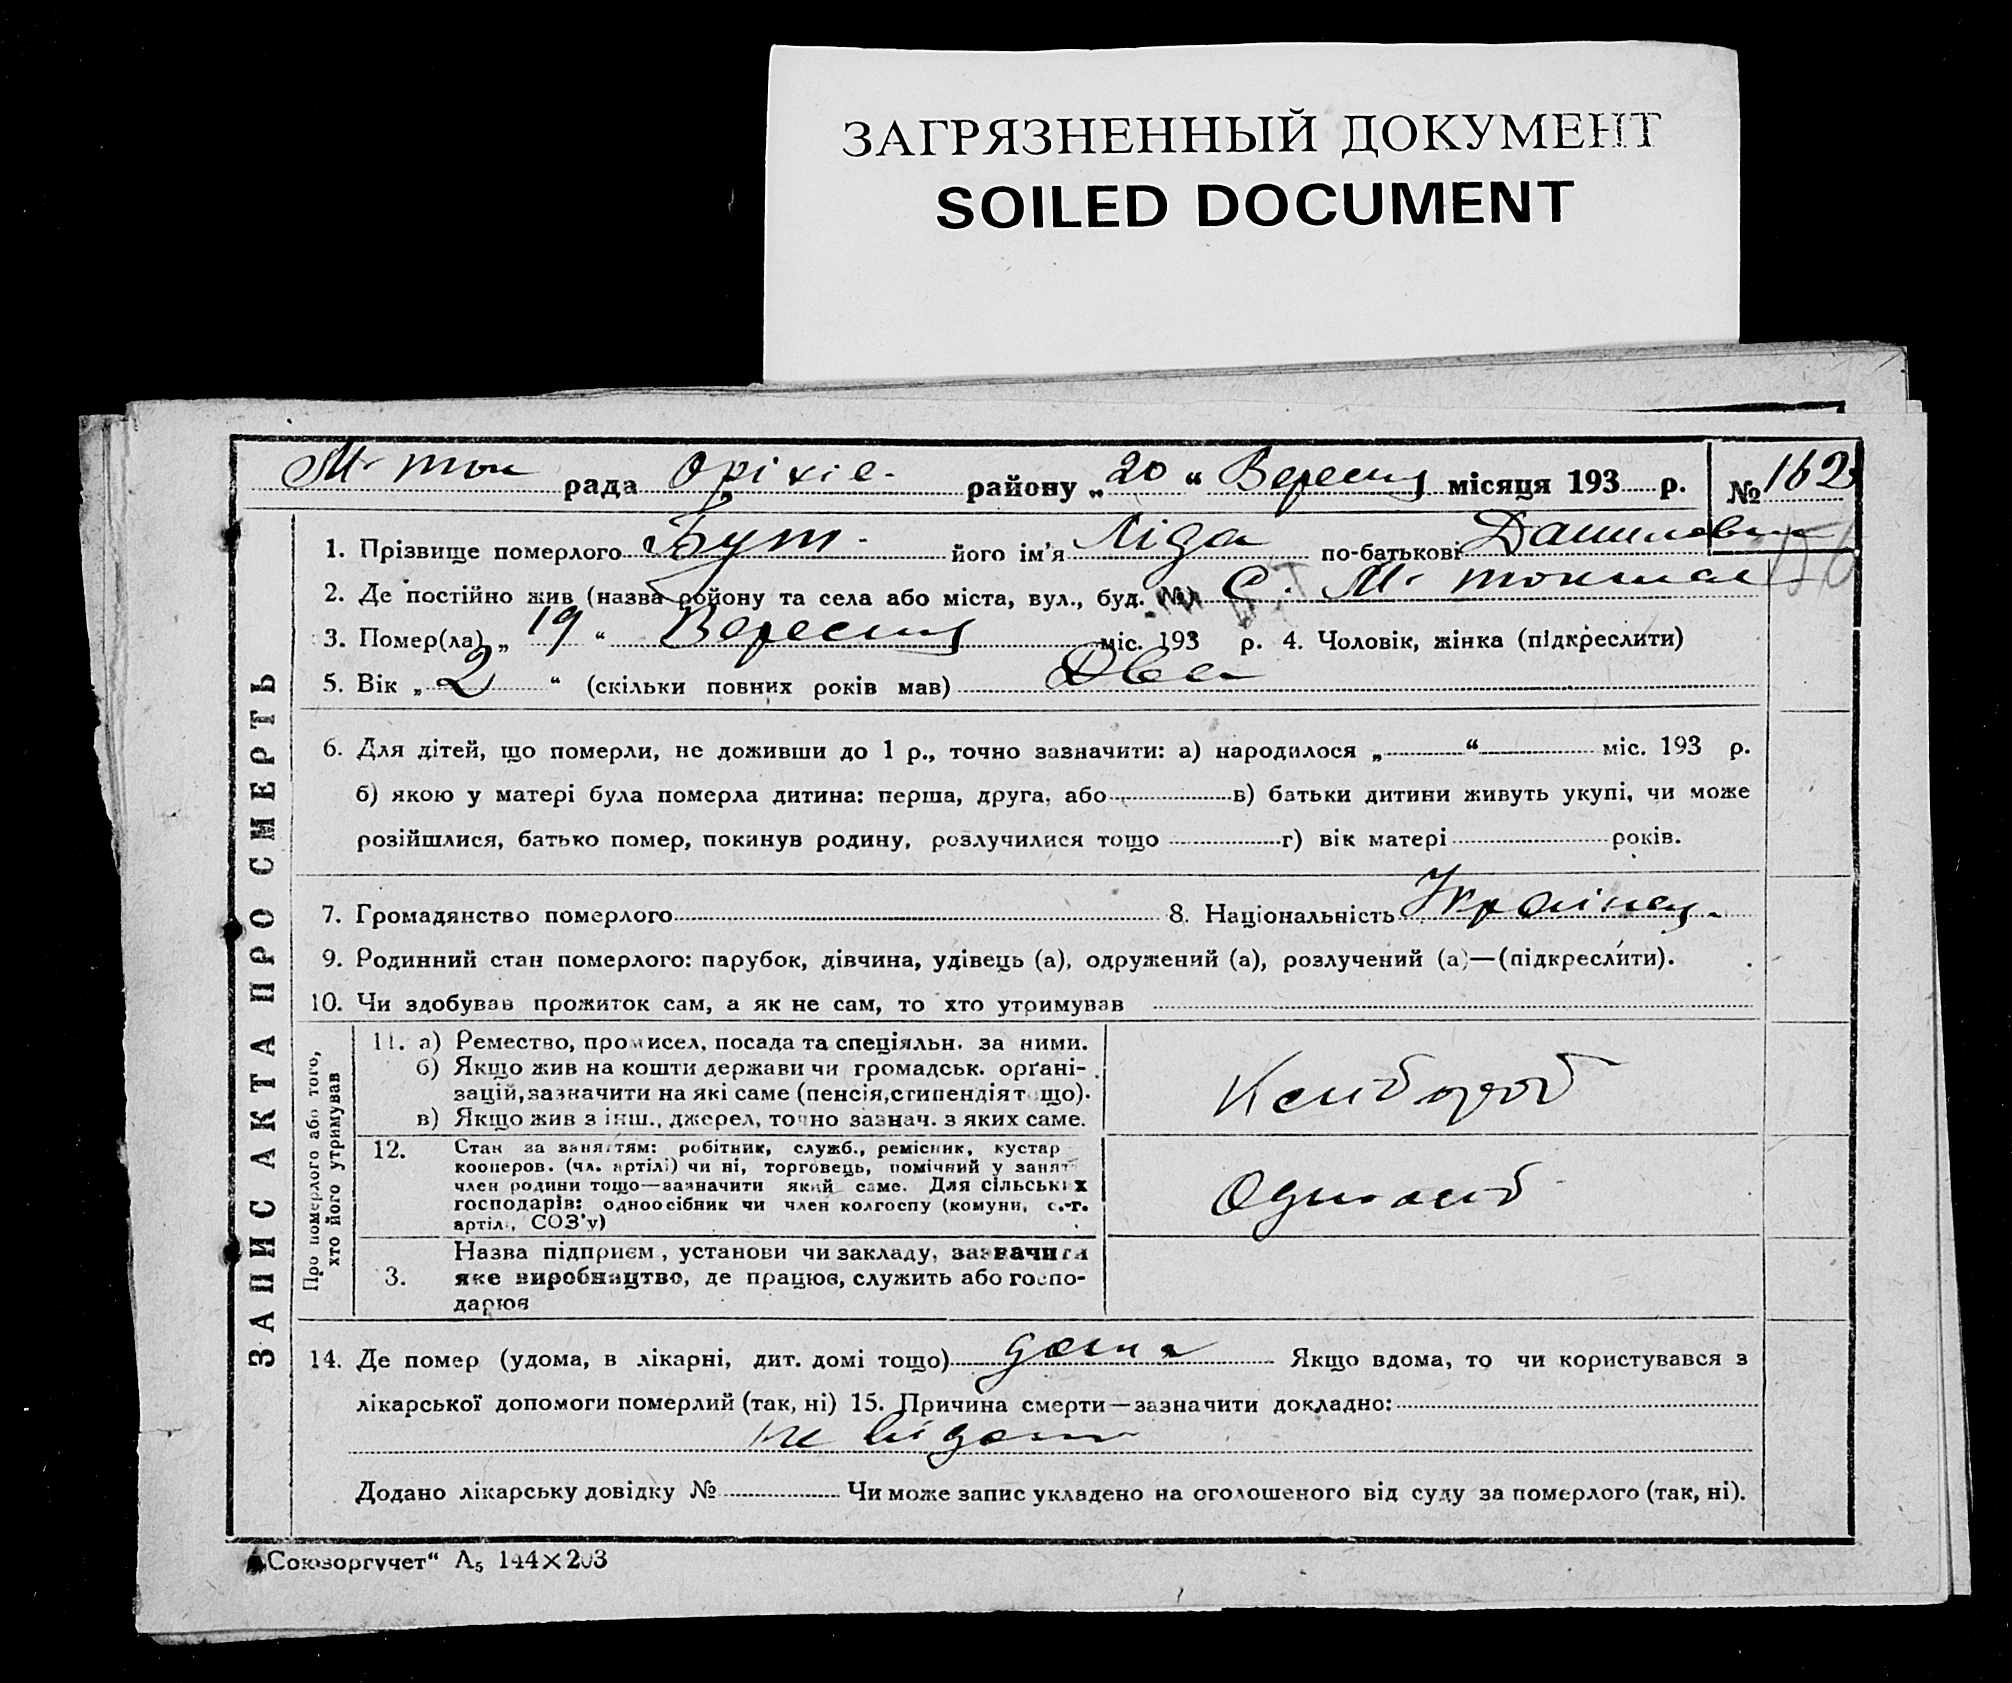 ЗАГРЯЗНЕННЫЙ ДОКУМЕНТ
SOILED DOCUMENT
М- ток рада Оріхів. району „20“ Вересня місяця 193 р. № 162
1. Прізвище померлого Бут його ім'я Ліда по-батькові Даниловна
2. Де постійно жив (назва району та села або міста, вул., буд. №) С. М- токмак
3. Помер(ла) „19“ Вересня міс. 193 р. 4. Чоловік, жінка (підкреслити)
5. Вік „2“ (скільки повних років мав) Два
6. Для дітей, що померли, не доживши до 1 р., точно зазначити: а) народилося „ “ міс. 193 р.
б) якою у матері була померла дитина: перша, друга, або в) батьки дитини живуть укупі, чи може
розійшлися, батько помер, покинув родину, розлучилися тощо г) вік матері років.
7. Громадянство померлого 8. Національність Українец
9. Родинний стан померлого: парубок, дівчина, удівець (а), одружений (а), розлучений (а)—(підкреслити).
10. Чи здобував прожиток сам, а як не сам, то хто утримував
ЗАПИС АКТА ПРО СМЕРТЬ
Про померлого або того, хто його утримував
11. а) Ремество, промисел, посада та спеціяльн. за ними.
б) Якщо жив на кошти держави чи громадськ. орґані-
зацій, зазначити на які саме (пенсія, стипендія тощо).
в) Якщо жив з інш., джерел, точно зазнач. з яких саме.
12. Стан за заняттям: робітник, служб., ремісник, кустар
кооперов. (чл. артілі) чи ні, торговець, помічний у занят
член родини тощо—зазначити який саме. Для сільських
господарів: одноосібник чи член колгоспу (комуни, с.-г.
артіл., СОЗ'у)
Одноосіб
Назва підприєм., установи чи закладу, зазначити
3. яке виробництво, де працює, служить або госпо-
дарює
14. Де помер (удома, в лікарні, дит. домі тощо) дома Якщо вдома, то чи користувався з
лікарської допомоги померлий (так, ні) 15. Причина смерти—зазначити докладно:
не відомо
Додано лікарську довідку № Чи може запис укладено на оголошеного від суду за померлого (так, ні).
„Союзоргучет“ А₅ 144×203